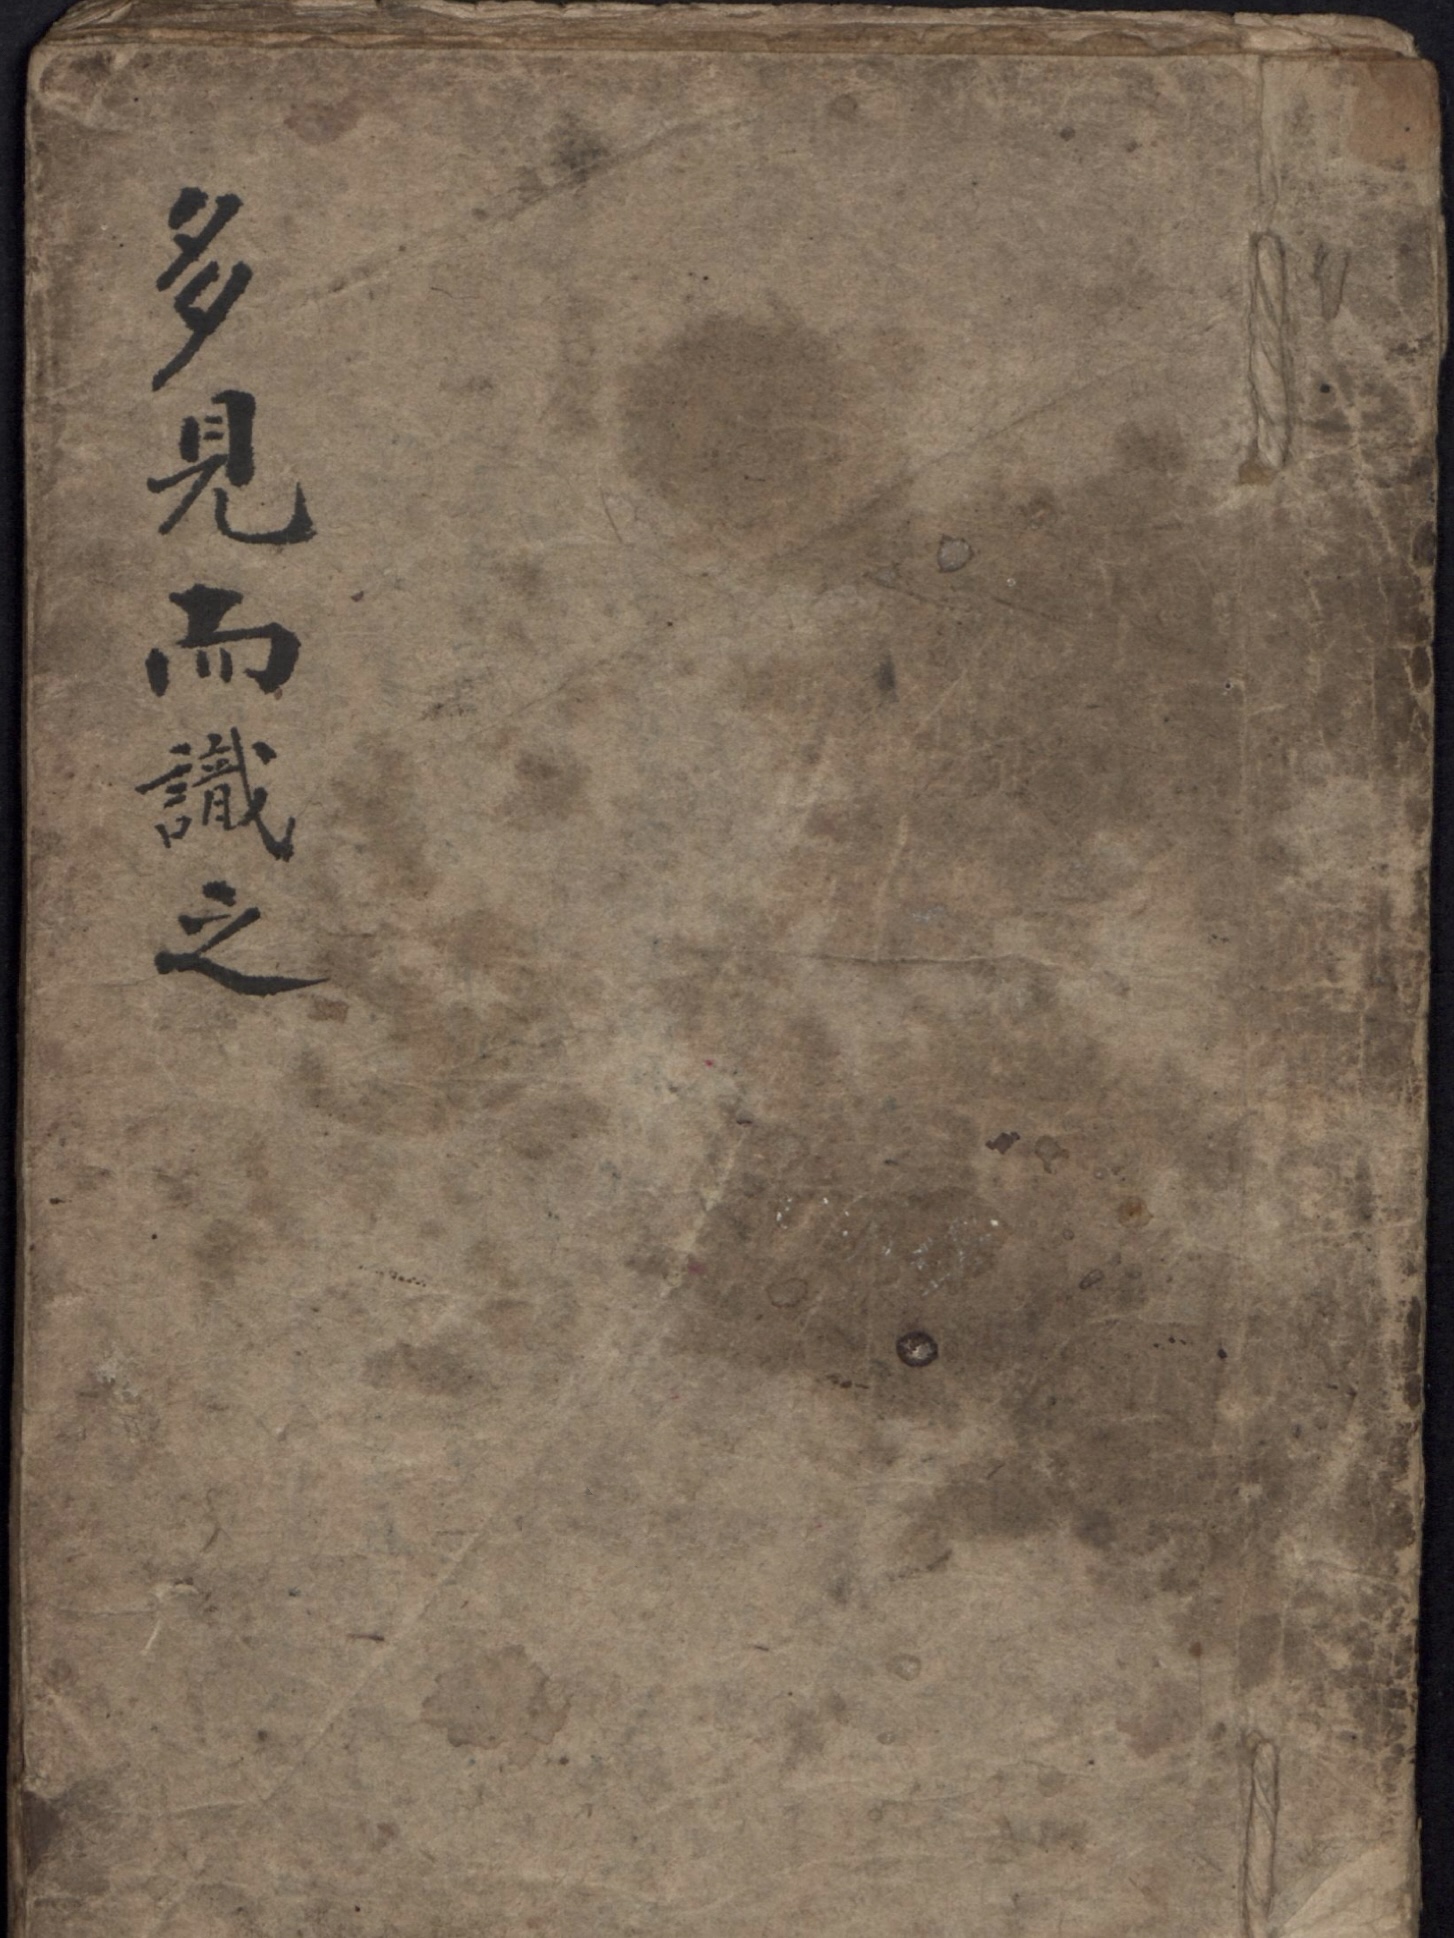 多見而識之